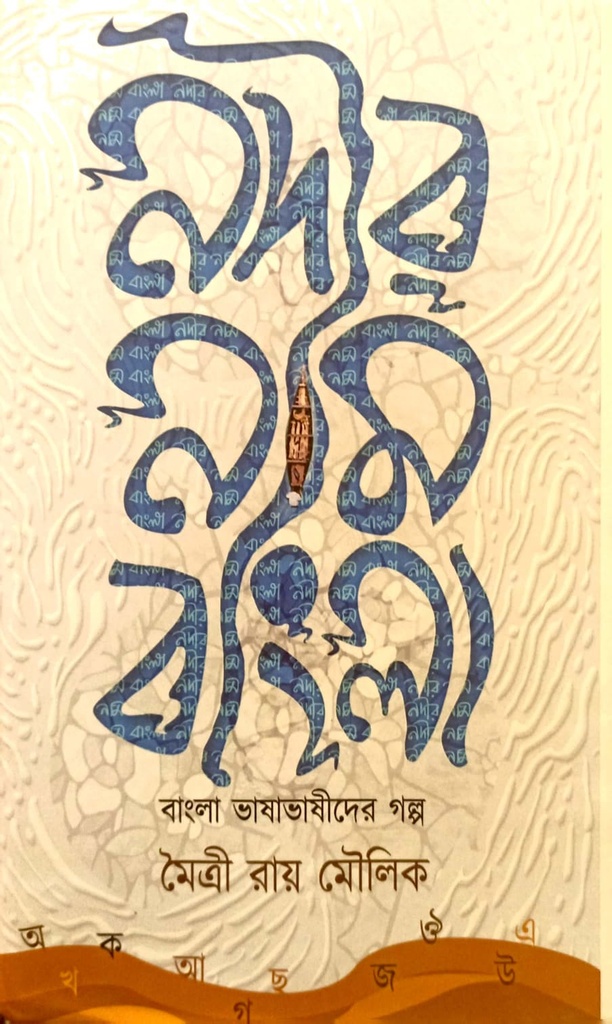 নদীর
নাম
বাংলা
বাংলা ভাষাভাষীদের গল্প
মৈত্রী রায় মৌলিক
অ ক ঔ এ
খ আ ছ জ উ
গ